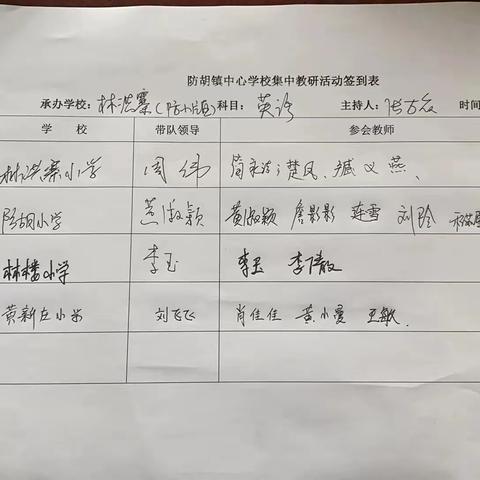 防胡镇中心学校集中教研活动签到表
承办学校:林洪寨(防小版)科目:英语 主持人:张古众 时间
学 校 带队领导 参会教师
林洪寨小学 周炜 楚凤、臧义燕、
防胡小学 黄淑颖 黄淑颖 詹影影 连雪 刘玲
林楼小学 李玉 李玉 李倩毅
黄新庄小学 刘飞飞 肖佳佳 黄小曼 王敏.